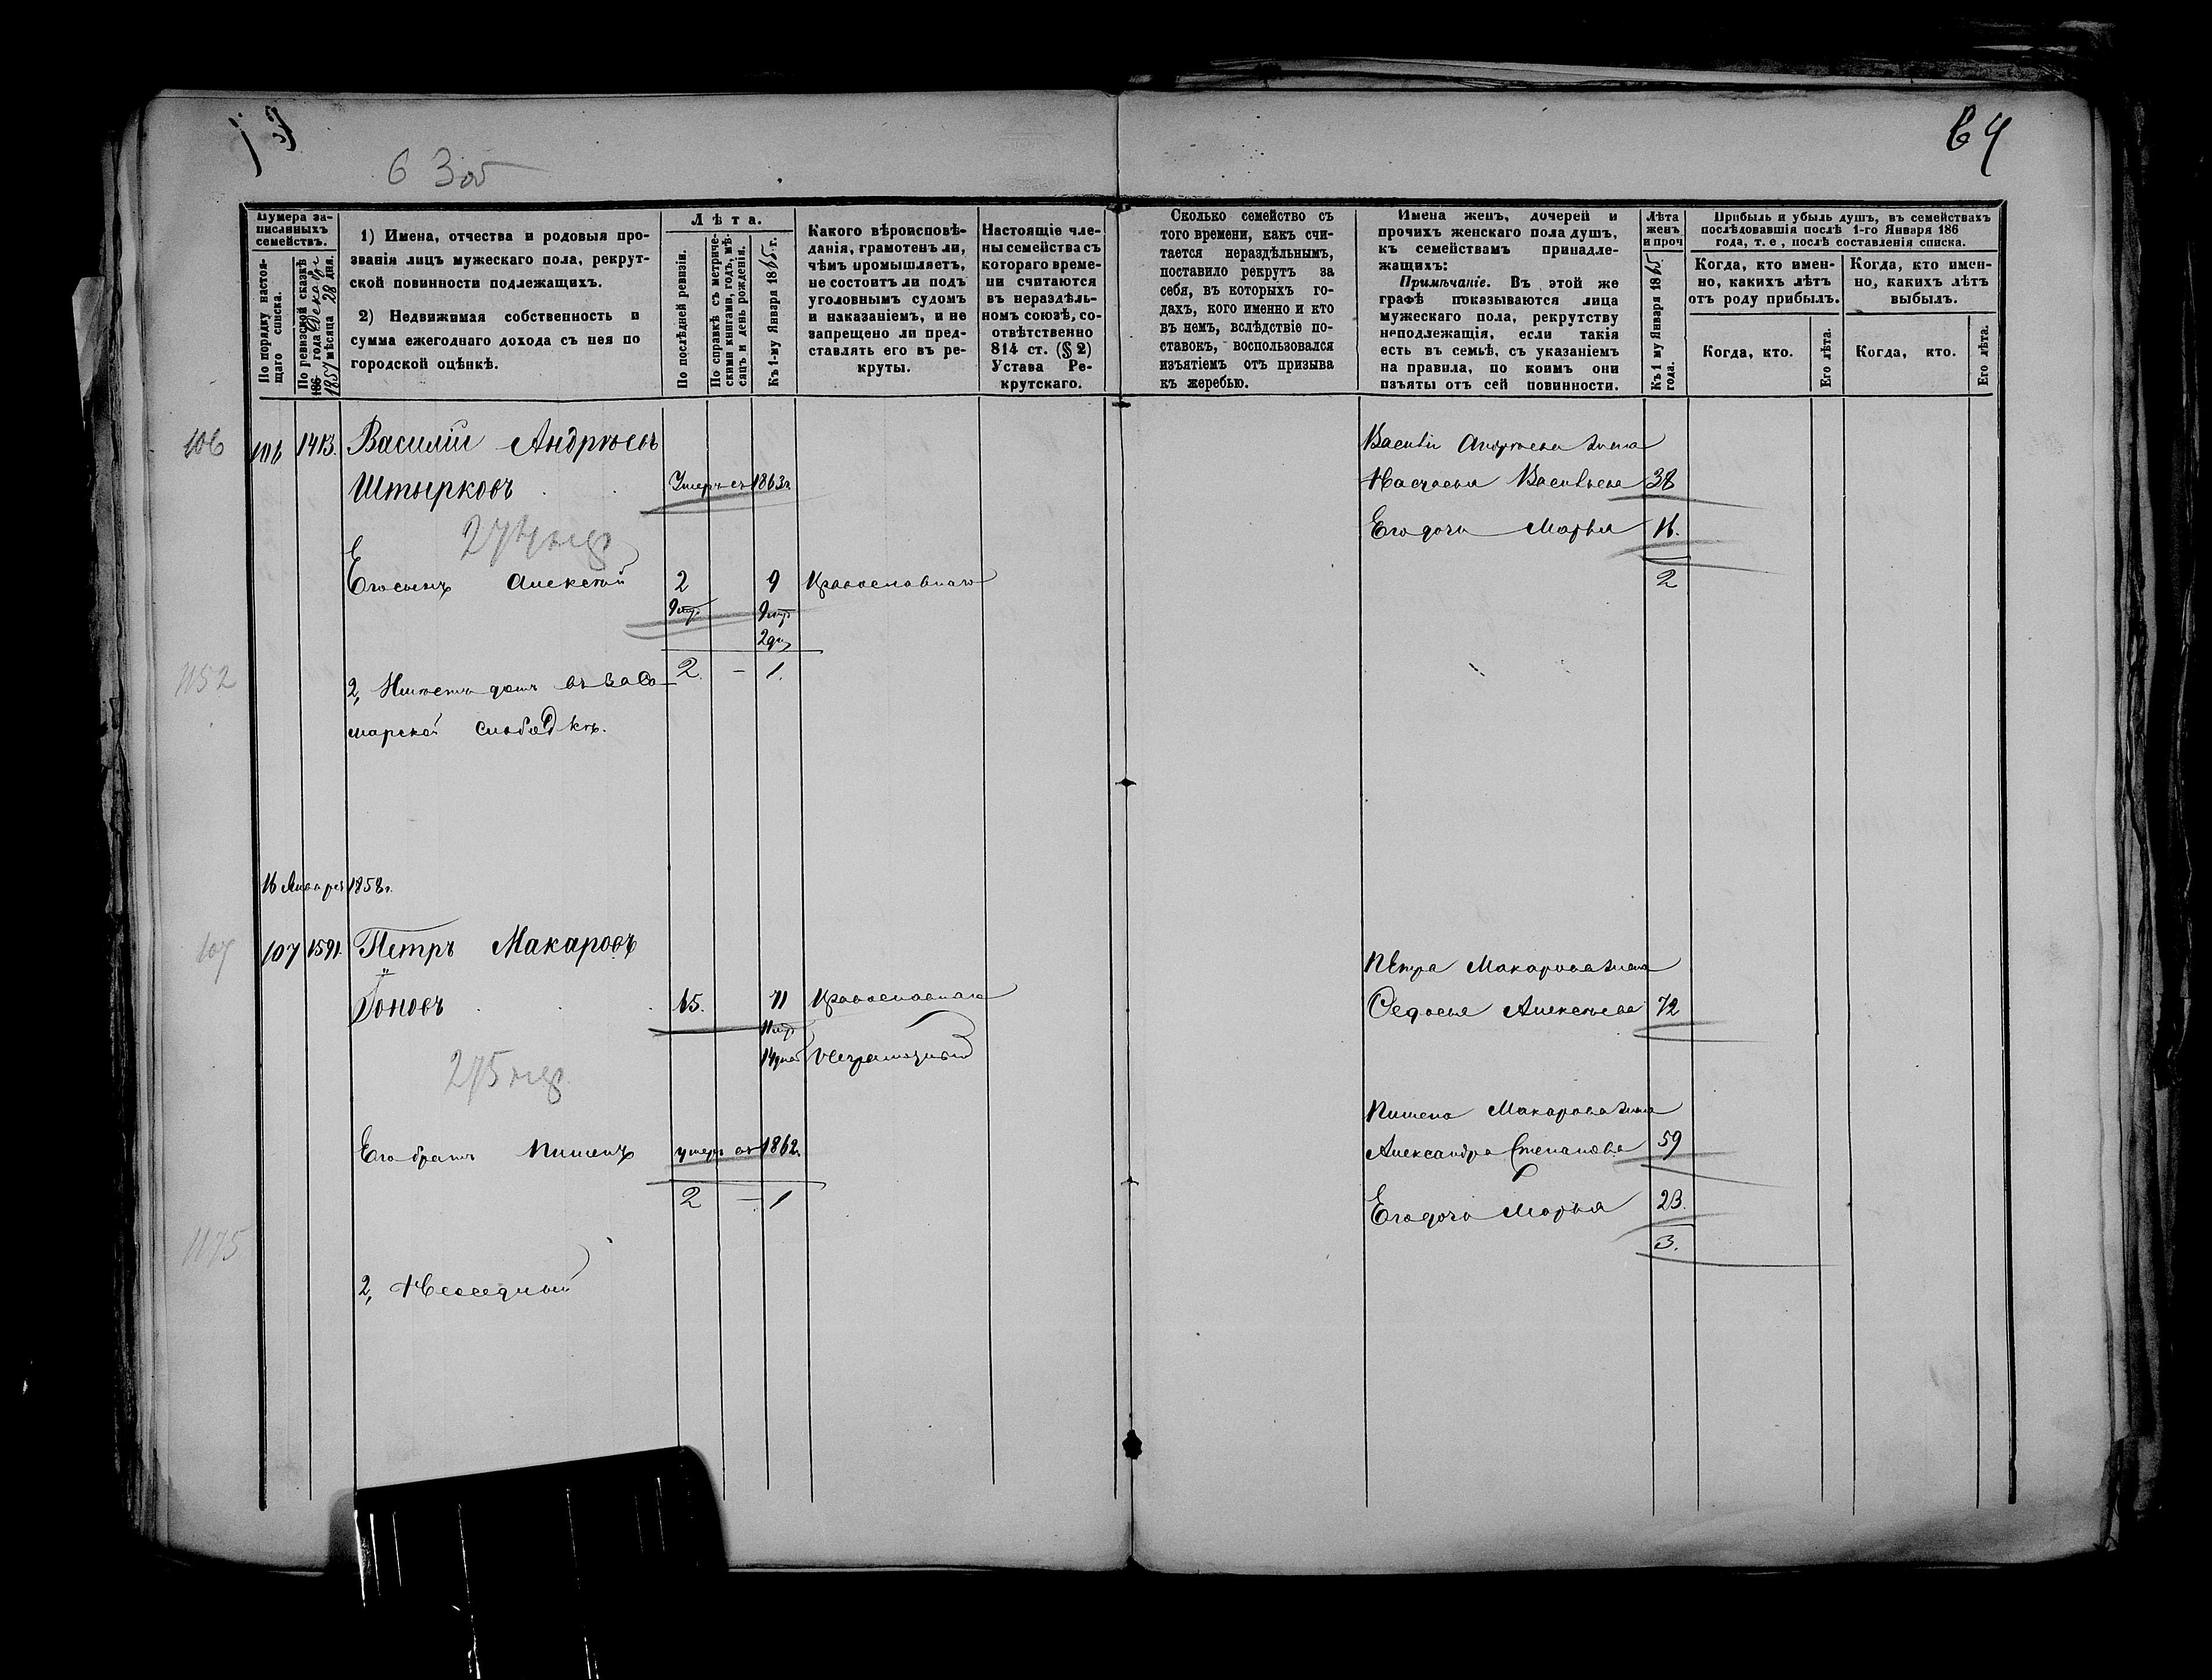 63 об
64
Нумера записанныхъ семействъ.
По порядку настоящаго списка.
По ревизской сказкѣ 186 1857 года Декабря мѣсяца 28 дня.
1) Имена, отчества и родовыя прозванія лицъ мужескаго пола, рекрутской повинности подлежащихъ.
2) Недвижимая собственность и сумма ежегоднаго дохода съ нея по городской оцѣнкѣ.
Лѣта.
По послѣдней ревизіи.
По справкѣ съ метрическими книгами, годъ, мѣсяцъ и день рожденія.
Къ 1-му Января 1865 г.
Какого вѣроисповѣданія, грамотенъ ли, чѣмъ промышляетъ, не состоитъ ли подъ уголовнымъ судомъ и наказаніемъ, и не запрещено ли представлять его въ рекруты.
Настоящіе члены семейства съ котораго времени считаются въ нераздѣльномъ союзѣ, соотвѣтственно 814 ст. (§ 2) Устава Рекрутскаго.
Сколько семейство съ того времени, какъ считается нераздѣльнымъ, поставило рекрутъ за себя, въ которыхъ годахъ, кого именно и кто въ немъ, вслѣдствіе поставокъ, воспользовался изъятіемъ отъ призыва къ жеребью.
Имена женъ, дочерей и прочихъ женскаго пола душъ, къ семействамъ принадлежащихъ:
Примѣчаніе. Въ этой же графѣ показываются лица мужескаго пола, рекрутству неподлежащія, если такія есть въ семьѣ, съ указаніемъ на правила, по коимъ они изъяты отъ сей повинности.
Лѣта женъ и проч
Къ 1 му Января 1865 года.
Прибыль и убыль душъ, въ семействахъ послѣдовавшія послѣ 1-го Января 186 года, т. е, послѣ составленія списка.
Когда, кто именно, какихъ лѣтъ отъ роду прибылъ.
Когда, кто именно, какихъ лѣтъ выбылъ.
Когда, кто.
Его лѣта.
Когда, кто.
Его лѣта.
106 106 1413. Василій Андрѣевъ
Штырковъ Умеръ въ 1863 г.
274
Его сынъ Алексѣй 2 9 Православнаго
9 мѣс. 9 мѣс.
2 дн.
2. — 1.
1152
2, Имѣетъ домъ въ
слободкѣ.
Василія Андрѣева жена
Настасья Васильева 38
Его дочь Марья 16.
2
16 Января 1858 г.
107 107 1591. Петръ Макаровъ
65. 71 Православнаго
11 мѣс.
14 дней неграмотный
275
Его братъ Пименъ умеръ въ 1862.
2 — 1
1175
2, Неоседлый
Петра Макарова жена
Федосья Алексѣева 72
Пимена Макарова жена
Александра Степанова 59
Его дочь Марья 23.
3.